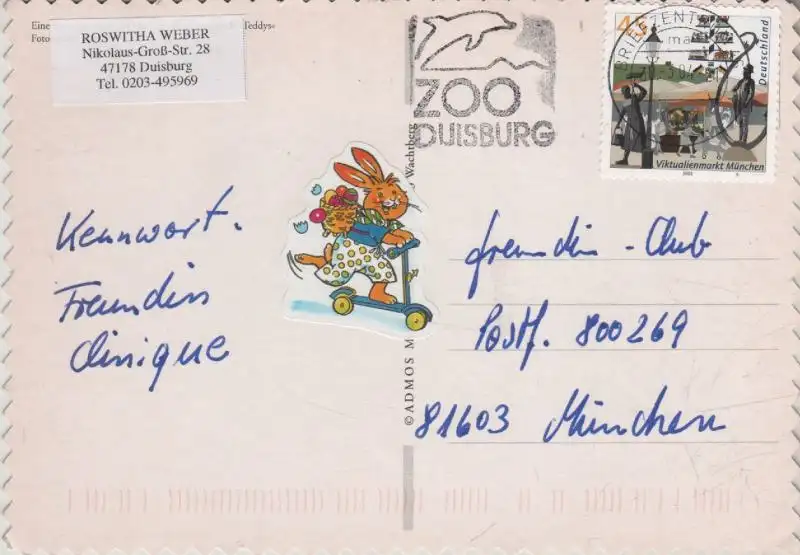 Eine
Teddys«
Foto
ROSWITHA WEBER
Nikolaus-Groß-Str. 28
47178 Duisburg
Tel. 0203-495969
ZOO
DUISBURG
BRIEFZENT
45
Deutschland
Viktualienmarkt München
Wachtberg
© ADMOS
Kennwort.
Freundin
Clinique
freundin-Club
Postf. 800269
81603 München